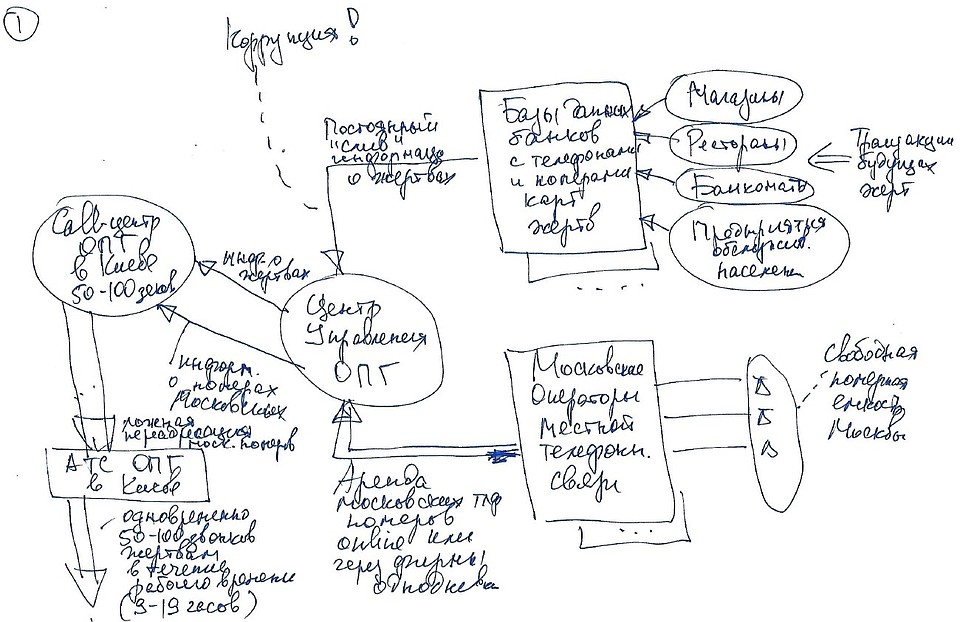 1
Коррупция!
Постоянный
"слив"
информации
о жертвах
Базы данных
банков
с телефонами
и номерами
карт
жертв
Магазины
Рестораны
Банкоматы
Предприятия
обслужив.
населен.
Транзакции
будущих
жертв
Call-центр
ОПГ
в Киеве
50-100 зеков
инф. о
жертвах
Центр
Управления
ОПГ
информ.
о номерах
Московских
ложная
переадресация
моск. номеров
АТС ОПГ
в Киеве
одновременно
50-100 звонков
жертвам
в течение
рабочего времени
(9-19 часов)
Аренда
московских тлф
номеров
online или
через фирмы
однодневки
Московские
Операторы
местной
телефонн.
связи
Свободная
номерная
емкость
Москвы